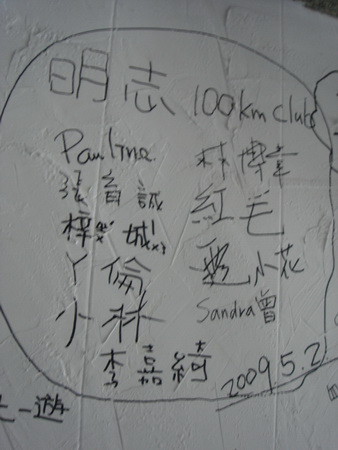 明志 100km club
Pauline 林博峯
張育誠 紅毛
梓 城 小花
丫倫 Sandra曾
小林
李嘉綺
2009 5.2
一遊